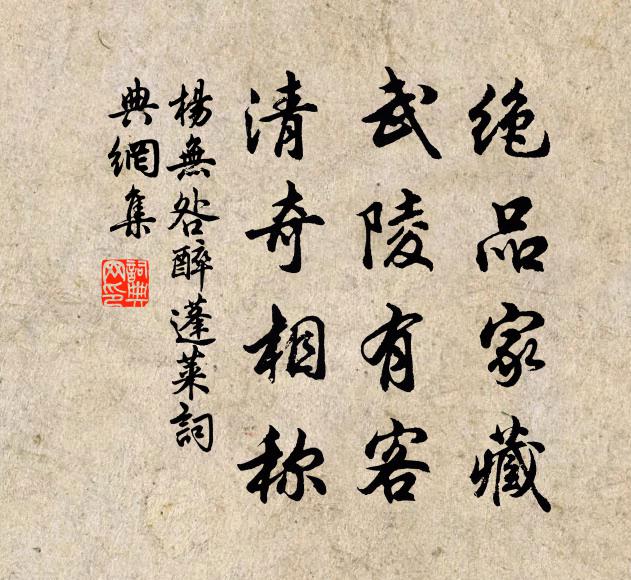 绝品家藏
武陵有客
清奇相称
楊無咎醉蓬莱詞
典網集
詞典网印